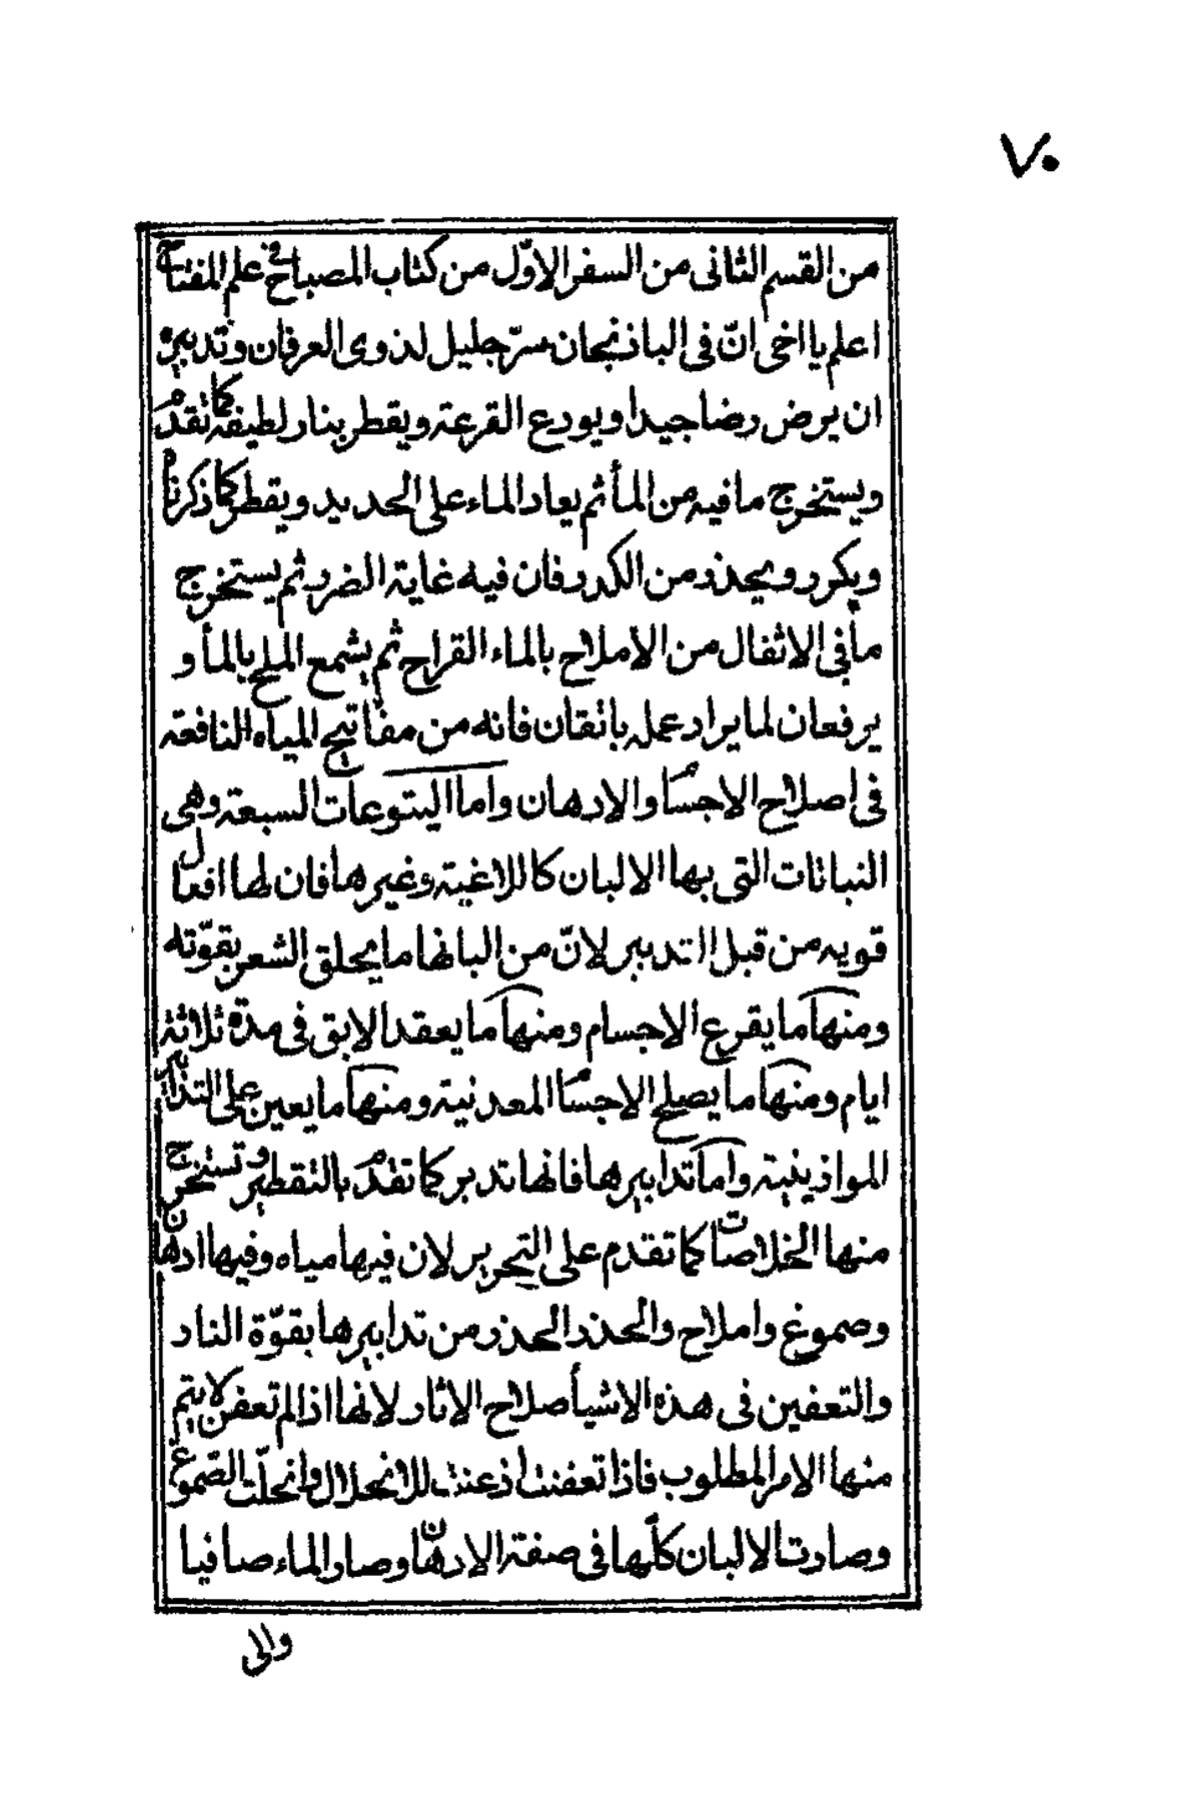 ٧٠
من القسم الثانى من السفر الاوّل من كتاب المصباح فى علم المفتاح
اعلم يا اخى انّ فى الباذنجان سرّ جليل لذوى العرفان وتدبيره
ان يرض رضا جيدا ويودع القرعة ويقطر بنار لطيفة كما تقدم
ويستخرج ما فيه من المأ ثم يعاد الماء على الحديد ويقطر كما ذكرناه
ويكرر ويحذر من الكدر فان فيه غاية الضرر ثم يستخرج
ما فى الاثفال من الاملاح بالماء القراح ثم يشمع الملح بالمأ و
يرفعان لما يراد عمله باتقان فانه من مفاتيح المياه النافعة
فى اصلاح الاجسام والادهان واما اليتوعات السبعة وهى
النباتات التى بها الالبان كاللاغية وغيرها فان لها افعال
قويه من قبل التدبير لانّ من البانها ما يحلق الشعر بقوّته
ومنها ما يقرع الاجسام ومنها ما يعقد الابق فى مدة ثلاثة
ايام ومنها ما يصلح الاجسام المعدنية ومنها ما يعين على التدابير
الموازينية واما تدابيرها فانها تدبر كما تقدم بالتقطير وتستخرج
منها الخلاصات كما تقدم على التحرير لان فيها مياه وفيها ادهان
وصموغ واملاح والحذر الحذر من تدابيرها بقوّة النار
والتعفين فى هذه الاشيأ صلاح الاثار لانها اذا لم تعفن لا يتم
منها الامر المطلوب فاذا تعفنت اذعنت للانحلال وانحلّت الصّموغ
وصارت الالبان كلّها فى صفة الادهان وصار الماء صافيا
والى